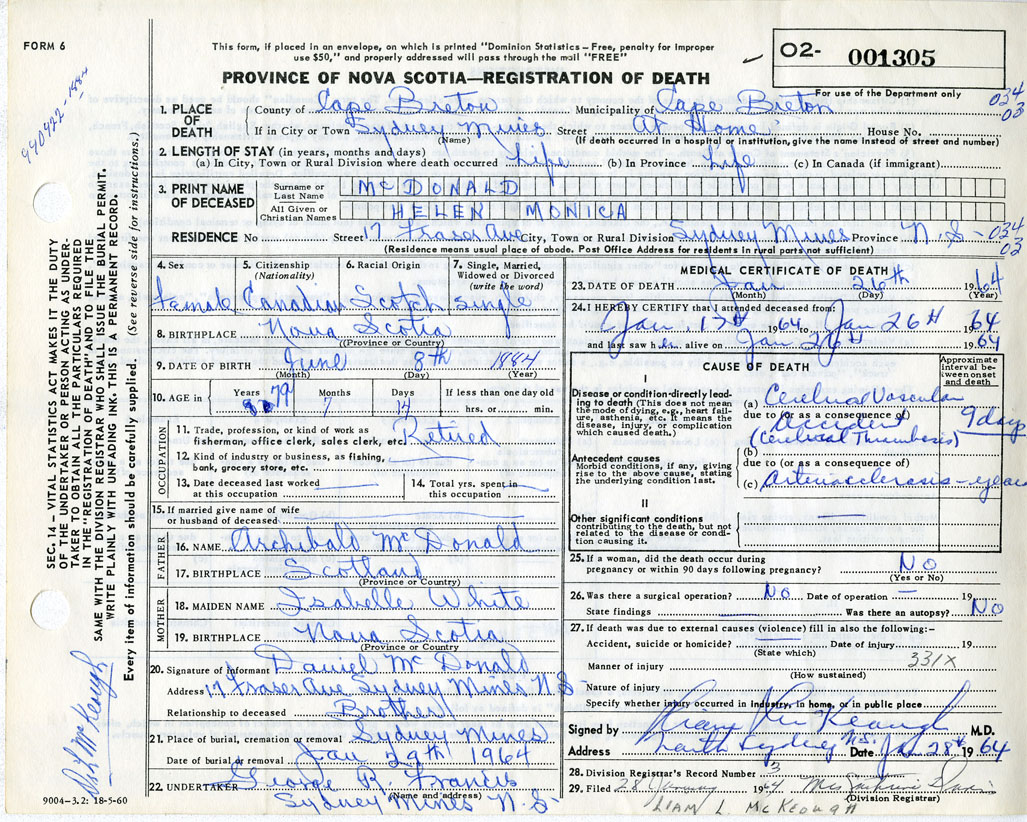 FORM 6
This form, if placed in an envelope, on which is printed "Dominion Statistics – Free, penalty for improper
use $50," and properly addressed will pass through the mail "FREE"
PROVINCE OF NOVA SCOTIA—REGISTRATION OF DEATH
O2- 001305
For use of the Department only
034
03
990922-1884
SEC. 14 – VITAL STATISTICS ACT MAKES IT THE DUTY
OF THE UNDERTAKER OR PERSON ACTING AS UNDER-
TAKER TO OBTAIN ALL THE PARTICULARS REQUIRED
IN THE "REGISTRATION OF DEATH" AND TO FILE THE
SAME WITH THE DIVISION REGISTRAR WHO SHALL ISSUE THE BURIAL PERMIT.
WRITE PLAINLY WITH UNFADING INK. THIS IS A PERMANENT RECORD.
Every item of information should be carefully supplied. (See reverse side for instructions.)
1. PLACE OF DEATH County of Cape Breton Municipality of Cape Breton
If in City or Town Sydney Mines Street At Home House No.
(Name) (If death occurred in a hospital or institution, give the name instead of street and number)
2. LENGTH OF STAY (in years, months and days)
(a) In City, Town or Rural Division where death occurred Life (b) In Province Life (c) In Canada (if immigrant)
3. PRINT NAME OF DECEASED Surname or Last Name McDONALD
All Given or Christian Names HELEN MONICA
RESIDENCE No Street 17 Fraser Ave City, Town or Rural Division Sydney Mines Province N.S- 034
03
(Residence means usual place of abode. Post Office Address for residents in rural parts Sufficient)
4. Sex 5. Citizenship (Nationality) 6. Racial Origin 7. Single, Married, Widowed or Divorced (write the word)
Female Canadian Scotch single
8. BIRTHPLACE Nova Scotia
(Province or Country)
9. DATE OF BIRTH June 8th 1884
(Month) (Day) (Year)
10. AGE in Years Months Days If less than one day old
79 7 14 hrs. or min.
OCCUPATION
11. Trade, profession, or kind of work as
fisherman, office clerk, sales clerk, etc. Retired
12. Kind of industry or business, as fishing,
bank, grocery store, etc.
13. Date deceased last worked
at this occupation
14. Total yrs. spent in
this occupation
15. If married give name of wife
or husband of deceased
FATHER
16. NAME Archibald McDonald
17. BIRTHPLACE Scotland
(Province or Country)
MOTHER
18. MAIDEN NAME Isabelle White
19. BIRTHPLACE Nova Scotia
(Province or Country)
20. Signature of Informant Daniel McDonald
Address 17 Fraser Ave Sydney Mines N.S-
Relationship to deceased Brother
21. Place of burial, cremation or removal Sydney Mines
Date of burial or removal Jan 29th 1964
22. UNDERTAKER George R. Francis
(Name and address)
Sydney Mines N.S-
9004-3.2: 18-5-60
MEDICAL CERTIFICATE OF DEATH
23. DATE OF DEATH Jan 26th 1964
(Month) (Day) (Year)
24. I HEREBY CERTIFY that I attended deceased from:
Jan. 17th 1964 to Jan 26th 1964
and last saw her alive on Jan 26th 1964
CAUSE OF DEATH
Approximate interval between onset and death
I
Disease or condition directly lead-
ing to death (This does not mean
the mode of dying, e.g., heart fail-
ure, asthenia, etc. It means the
disease, injury, or complication
which caused death.)
(a) Cerebral Vascular
due to (or as a consequence of)
Accident 9 days
(Cerebral Thrombosis)
(b)
Antecedent causes
Morbid conditions, if any, giving
rise to the above cause, stating
the underlying condition last.
due to (or as a consequence of)
(c) Arteriosclerosis – years
II
Other significant conditions
contributing to the death, but not
related to the disease or condi-
tion causing it.
25. If a woman, did the death occur during
pregnancy or within 90 days following pregnancy? No
(Yes or No)
26. Was there a surgical operation? No Date of operation — 19
State findings Was there an autopsy? No
27. If death was due to external causes (violence) fill in also the following:–
Accident, suicide or homicide? Date of injury 19
(State which) 331X
Manner of injury
(How sustained)
Nature of injury
Specify whether injury occurred in Industry, in home, or in public place
Signed by Liam McKeough M.D.
Address North Sydney N.S. Date Jan 28th 1964
28. Division Registrar's Record Number 3
29. Filed 28 January 1964
(Division Registrar)
LIAM L. McKEOUGH